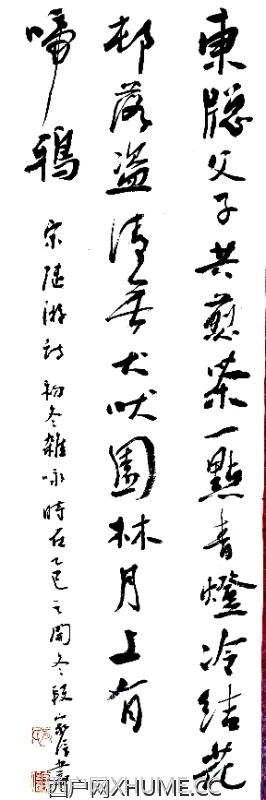 東牕父子共煎茶一點青燈冷結花
邨落盗清無犬吠園林月上有
啼鴉 宋陸游詩初冬雜咏時在乙巳之開冬段家書
西户网XHUME.CC